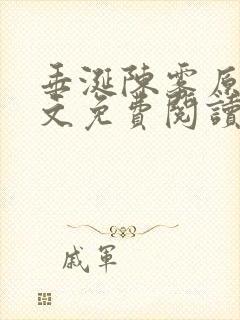 垂涎陳雾原
文免費閱讀
戚軍